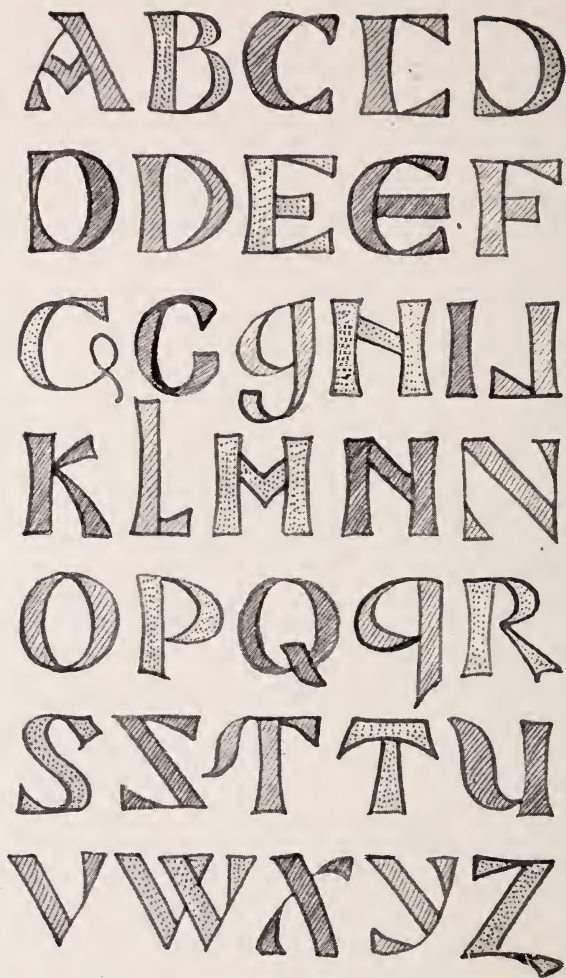 A B C C D
D D E E F
G G g H I J
K L M N N
O P Q q R
S S T T U
V W X y Z